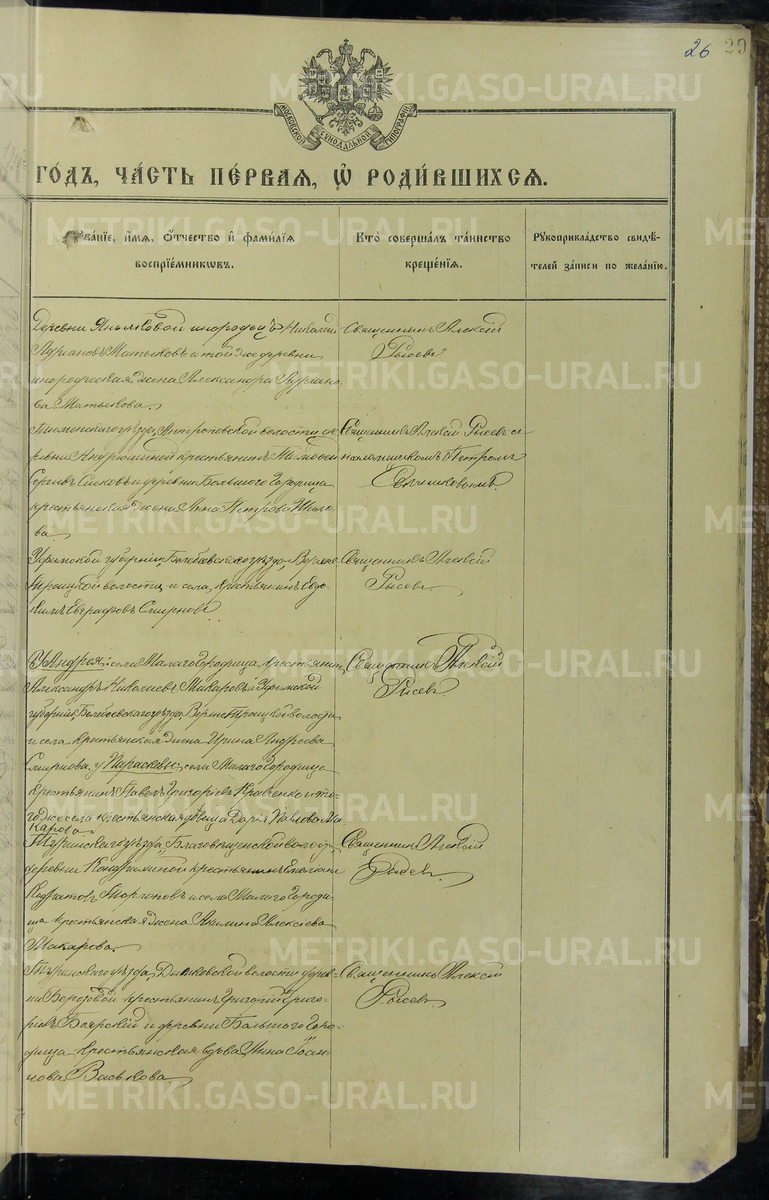 26 29
МОСКОВСКОЙ СѴНОДАЛЬНОЙ ТИПОГРАФІИ
ГО́ДЪ, ЧА́СТЬ ПЕ́РВАЯ, Ѡ҆ РОДИ́ВШИХСѦ.
ва́нїе, и҆́мѧ, ѻ҆́тчество и҆ фами́лїѧ
воспрїе́мникѡвъ.
Кто̀ соверша́лъ та́инство
креще́нїѧ.
Рꙋкоприкла́дство свидѣ́-
телей за́писи по жела́нїю.
Деревни инородецъ Николай
Адріановъ Матыковъ и той же деревни
инородческая жена Александра Адріано-
ва Матыкова.
Священникъ Алексій
Рысевъ
Тюменскаго уѣзда, Антроповской волости де-
ревни Андрюшиной крестьянинъ
Сергѣевъ и деревни Большаго Городища
крестьянская жена Анна Петрова
ва
Священникъ Алексій Рысевъ съ
псаломщикомъ Петромъ
Уфимской губерніи, Белебеевскаго уѣзда, Верхне-
троицкой волости и села, крестьянинъ Евдо-
кимъ Евграфовъ Смирновъ.
Священникъ Алексій
Рысевъ
У Андрея: села Малаго Городища, крестьянинъ
Александръ Николаевъ Макаровъ и Уфимской
губерніи, Белебеевскаго уѣзда, Верхнетроицкой волости
и села крестьянская жена Ирина Андреева
Смирнова. у Параскевы: села Малаго Городища
крестьянинъ Павелъ Григорьевъ Кравченко и то-
го же села крестьянская дѣвица Дарія Павлова Ма-
карова
Священникъ Алексій
Рысевъ
Туринскаго уѣзда, Благовѣщенской волости,
деревни крестьянинъ Емельянъ
Кодратовъ и села Малаго Городи-
ща крестьянская жена Акилина Алексѣева
Макарова.
Священникъ Алексій
Рысевъ
Туринскаго уѣзда, волости дерев-
ни крестьянинъ Григорій Григо-
рьевъ Боярскій и деревни Большаго Горо-
дища крестьянская вдова Анна Іоан-
нова Васькова.
Священникъ Алексій
Рысевъ
METRIKI.GASO-URAL.RU